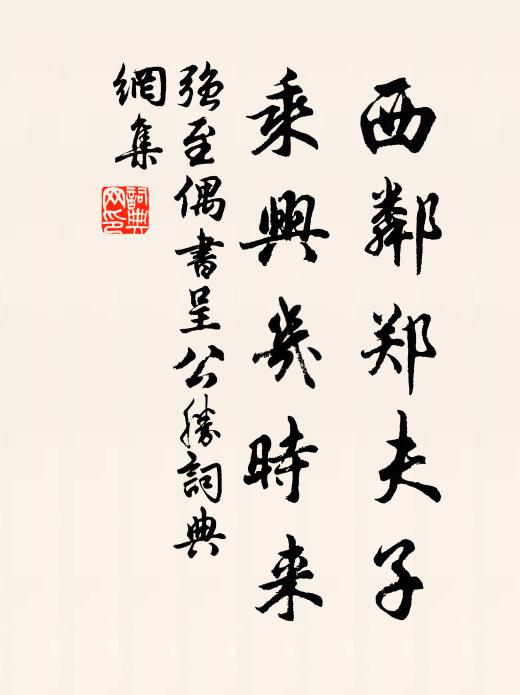 西鄰郑夫子
乘興幾時来
强至偶書呈公勝詞典
網集
詞典
网印